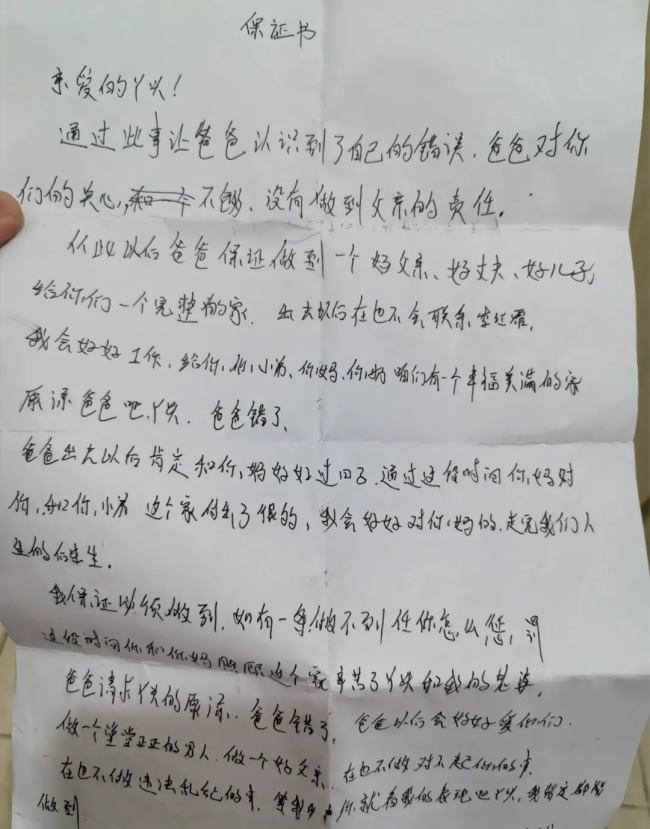 保证书
亲爱的丫头!
通过此事让爸爸认识到了自己的错误.爸爸对你
们的关心,不够、没有做到父亲的责任.
从此以后爸爸保证做到一个好父亲、好丈夫、好儿子,
给你们一个完整的家. 出去以后在也不会联系
我会好好工作.给你,和小弟、你妈、你奶 咱们有一个幸福美满的家
原谅爸爸吧.丫头. 爸爸错了、
爸爸出去以后肯定和你妈好好过日子.通过这段时间你妈对
你,和你小弟 这个家付出了很多,我会好好对你妈的.走完我们人
生的后半生.
我保证必须做到.如有一条做不到任你怎么惩罚
这段时间你和你妈照顾这个家辛苦了丫头和我的老婆.
爸爸请求丫头的原谅. 爸爸错了, 爸爸以后会好好爱你们.
做一个堂堂正正的男人.做一个好父亲. 在也不做对不起你们的事.
在也不做违法乱纪的事. 你就看我的表现吧丫头,我肯定都能
做到